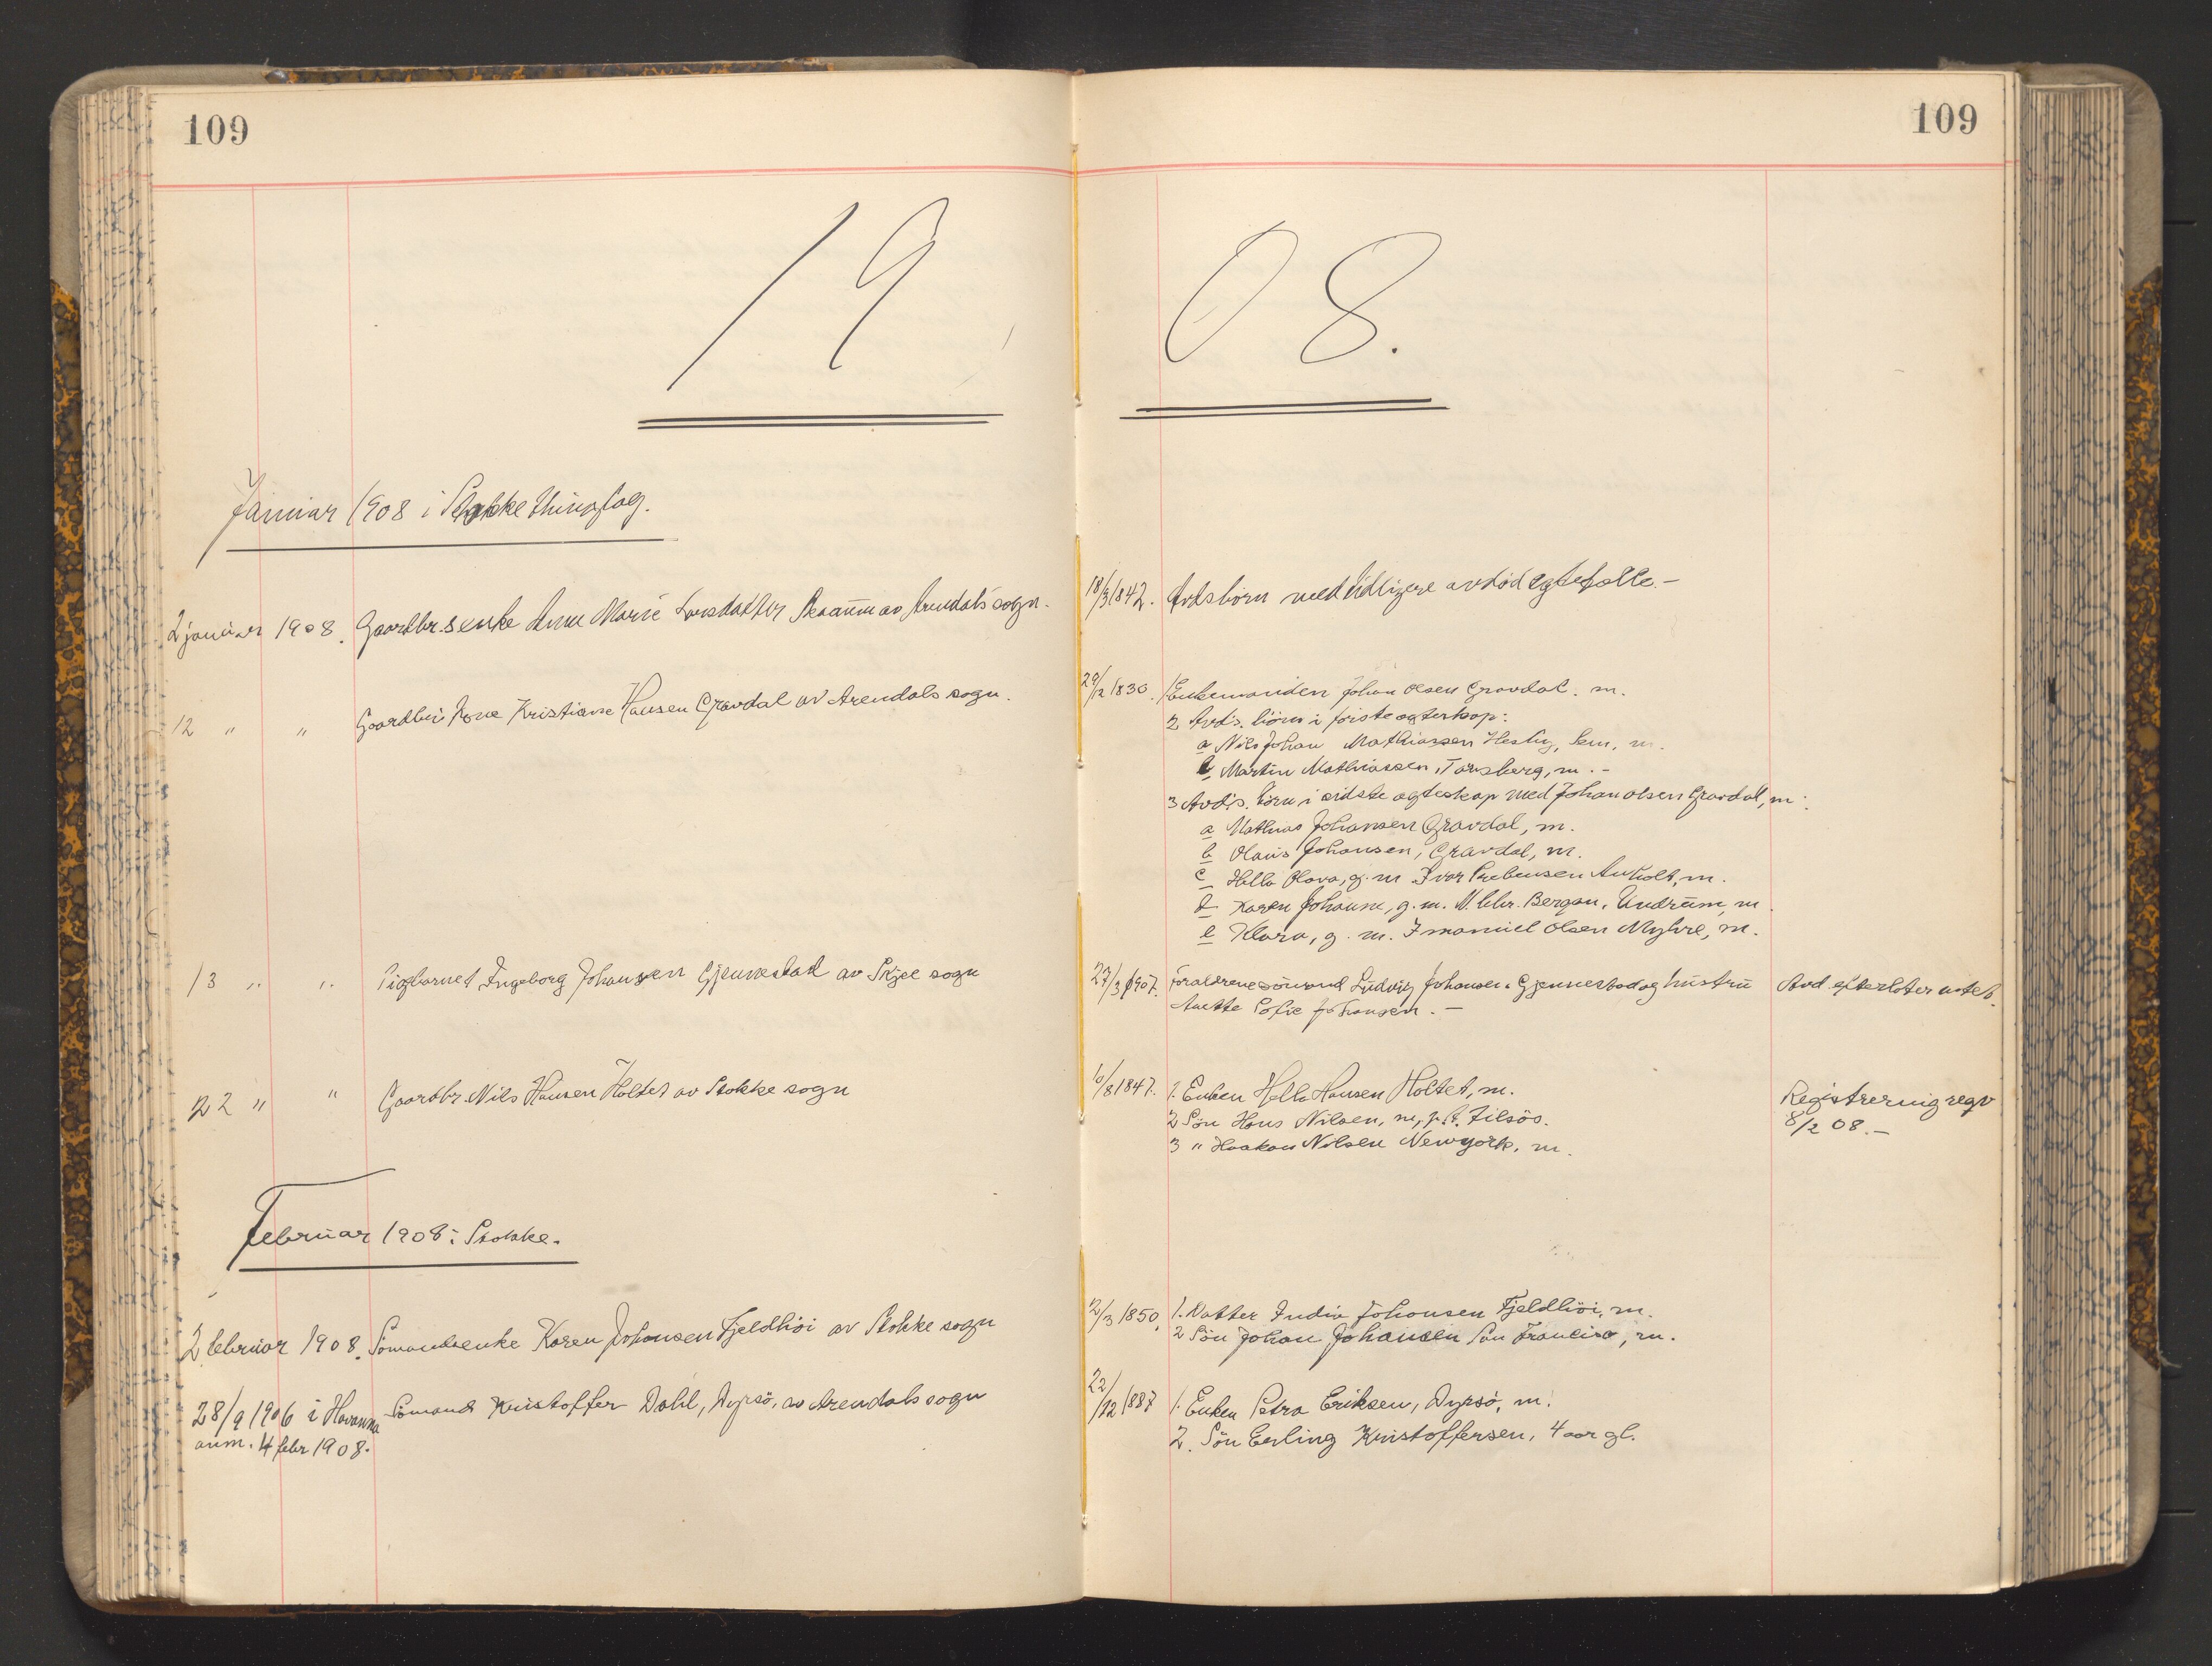 109
109
19
08.
Januar 1908 i Stokke thinglag.
2 januar 1908. Gaardbr.s enke Anne Marie Larsdatter Skaaum av Arendals sogn.
18/3 1842. Avds börn med tidligere avdöd egtefælle.-
12 " " Gaardbr.s kone Kristiane Hansen Gravdal av Arendals sogn.
29/12 1830. 1 Enkemanden Johan Olsen Gravdal. m.
2 Avd's. börn i förste egteskap:
a Nils Johan Mathiassen Hesby, Sem, m.
b Martin Mathiassen, Tönsberg, m.-
3 Avd's. börn i sidste egteskap med Johan Olsen Gravdal, m:
a Mathias Johansen Gravdal, m.
b Olaus Johansen, Gravdal, m.
c Hella Olava, g. m. Ivar Paulinsen Auholt, m.
d Karen Johanne, g. m. M. Chr. Bergan, Undrum, m.
e Klara, g. m. Imanuel Olsen Myhre, m.
13 " " Pigbarnet Ingeborg Johansen Gjennestad av Skjee sogn
27/3 1907. Forældrene sömand Ludvig Johansen Gjennestad og hustru
Anette Sofie Johansen.-
Avd. efterlater intet.
22 " " Gaardbr. Nils Hansen Holtet av Stokke sogn
10/8 1847. 1. Enken Helle Hansen Holtet, m.
2 Sön Hans Nilsen, m, p. t. tilsös.
3 " Haakon Nilsen Newyork, m.
Registrering reqv
8/2 08.-
Februar 1908 i Stokke.
2 februar 1908. Sömandsenke Karen Johansen Fjeldhöi av Stokke sogn
2/3 1850, 1. Datter India Johansen Fjeldhöi, m.
2 Sön Johan Johansen San Francisco, m.
28/9 1906 i Havanna Sömand Kristoffer Dahl, Dypsö, av Arendals sogn
anm. 4 febr 1908.
22/12 1887 1. Enken Petra Eriksen, Dypsö, m.
2. Sön Erling Kristoffersen, 4 aar gl.